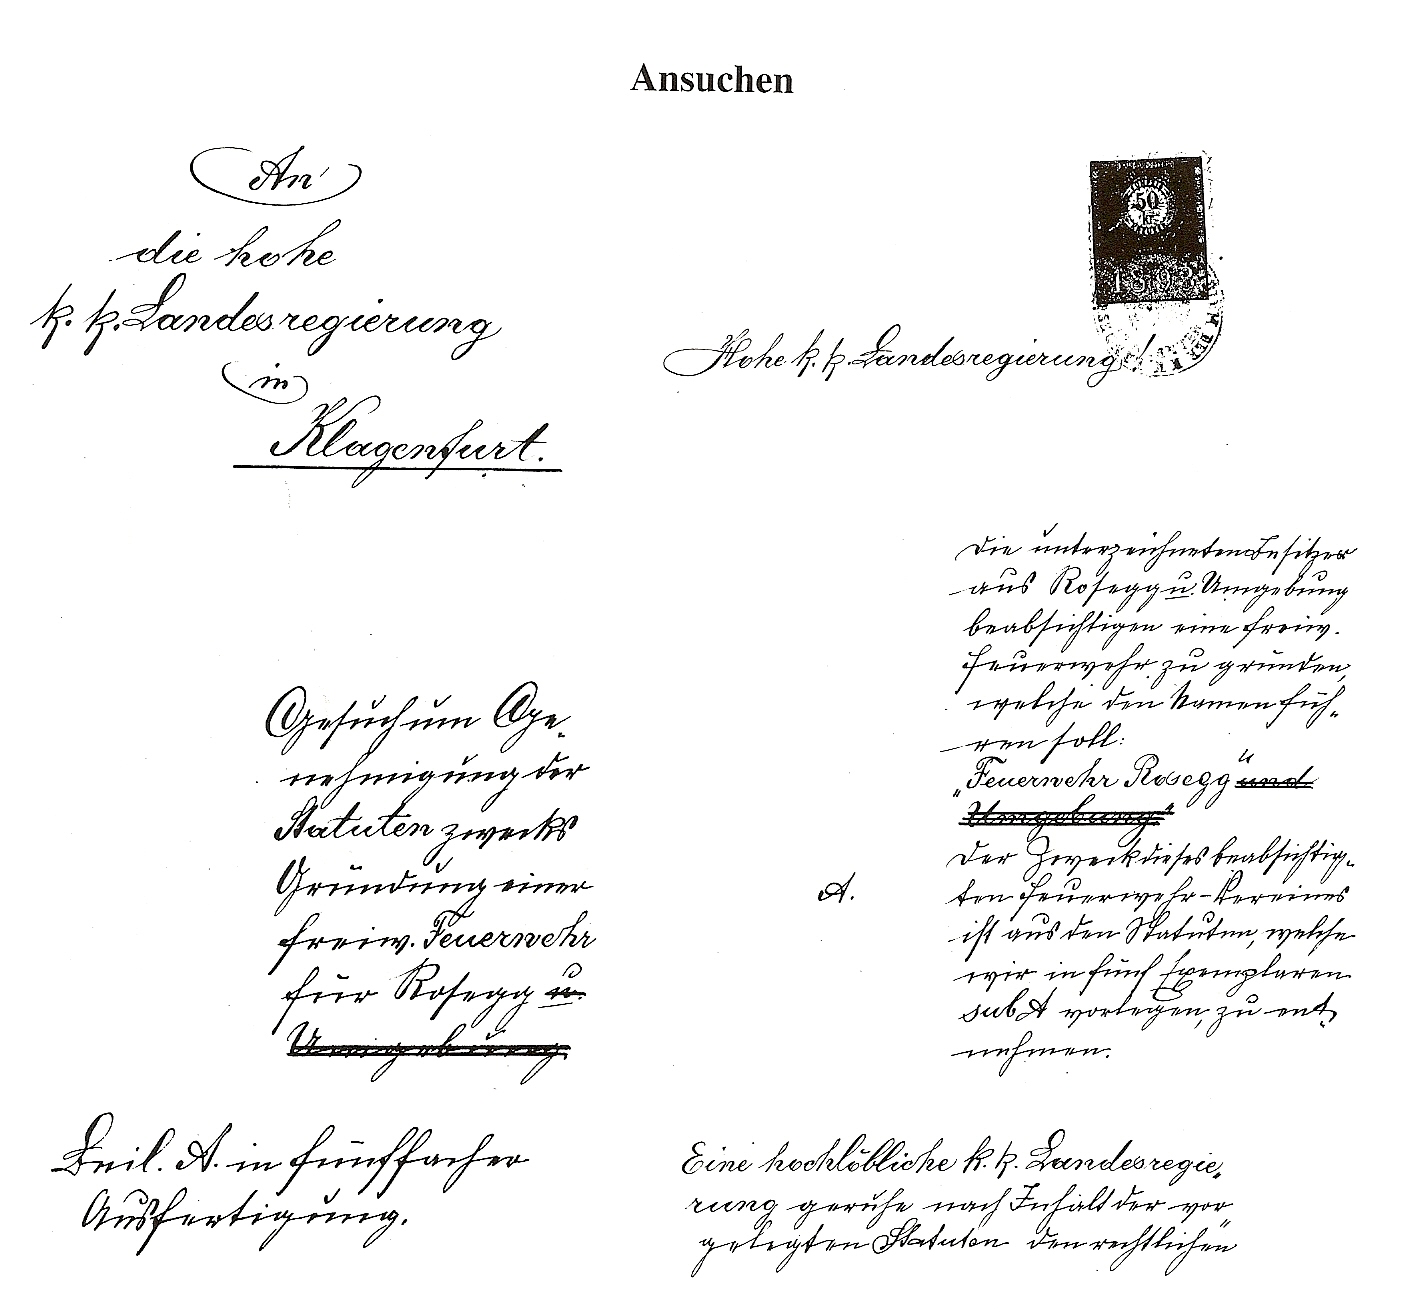 Ansuchen
An
die hohe
k. k. Landesregierung
in
Klagenfurt.
Gesuch um Ge-
nehmigung der
Statuten zwecks
Gründung einer
freiw. Feuerwehr
für Rosegg u.
Umgebung.
Beil. A. in fünffacher
Ausfertigung.
50
kr
Hohe k. k. Landesregierung!
Die unterzeichneten Besitzer
aus Rosegg u. Umgebung
beabsichtigen eine freiw.
Feuerwehr zu gründen,
welche den Namen füh-
ren soll:
„Feuerwehr Rosegg“ und
Umgebung“
Der Zweck dieses beabsichtig-
A. ten Feuerwehr-Vereines
ist aus den Statuten, welche
wir in fünf Exemplaren
sub A vorlegen, zu ent-
nehmen.
Eine hochlöbliche k. k. Landesregie-
rung geruhe nach Inhalt der vor-
gelegten Statuten den rechtlichen